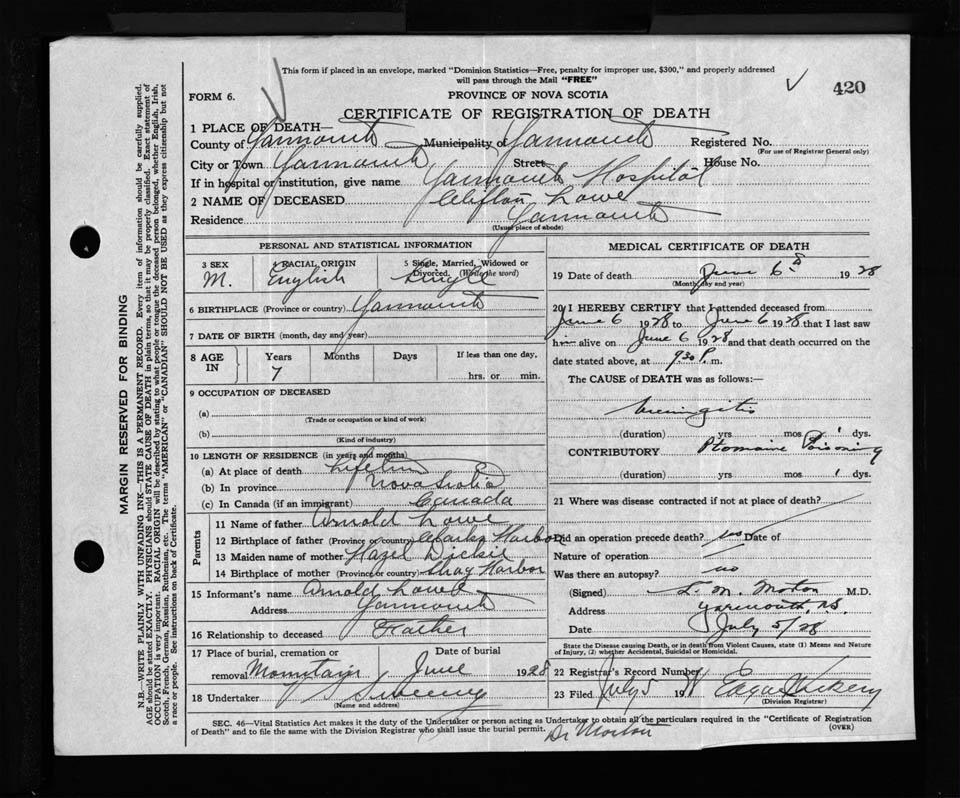 This form if placed in an envelope, marked "Dominion Statistics—Free, penalty for improper use, $300," and properly addressed
will pass through the Mail "FREE"
420
FORM 6.
PROVINCE OF NOVA SCOTIA
CERTIFICATE OF REGISTRATION OF DEATH
1 PLACE OF DEATH—
County of Yarmouth Municipality of Yarmouth Registered No.
(For use of Registrar General only)
City or Town Yarmouth Street House No.
If in hospital or institution, give name Yarmouth Hospital
2 NAME OF DECEASED Clifton Lowe
Residence Yarmouth
(Usual place of abode)
PERSONAL AND STATISTICAL INFORMATION
3 SEX 4 RACIAL ORIGIN 5 Single, Married, Widowed or
Divorced. (Write the word)
M. English Single
6 BIRTHPLACE (Province or country) Yarmouth
7 DATE OF BIRTH (month, day and year)
8 AGE IN Years Months Days If less than one day,
7 hrs. or min.
9 OCCUPATION OF DECEASED
(a)
(Trade or occupation or kind of work)
(b)
(Kind of industry)
10 LENGTH OF RESIDENCE (in years and months)
(a) At place of death Lifetime
(b) In province Nova Scotia
(c) In Canada (if an immigrant) Canada
Parents
11 Name of father Arnold Lowe
12 Birthplace of father (Province or country) Clarks Harbor
13 Maiden name of mother Hazel Dickie
14 Birthplace of mother (Province or country) Shag Harbor
15 Informant's name Arnold Lowe
Address Yarmouth
16 Relationship to deceased Father
17 Place of burial, cremation or Date of burial
removal Mountain June 1928
18 Undertaker Sweeny
(Name and address)
MEDICAL CERTIFICATE OF DEATH
19 Date of death June 6 1928
(Month, day and year)
20 I HEREBY CERTIFY that I attended deceased from
June 6 1928 to June 6 1928 that I last saw
him alive on June 6 1928 and that death occurred on the
date stated above, at 9.30 P. m.
The CAUSE of DEATH was as follows:—
Meningitis
(duration) yrs mos 1 dys.
CONTRIBUTORY Ptomaine Poisoning
(duration) yrs mos 1 dys.
21 Where was disease contracted if not at place of death?
Did an operation precede death? Date of
Nature of operation
Was there an autopsy? no
(Signed) L. M. Morton M.D.
Address Yarmouth, N.S.
Date July 5/28
State the Disease causing Death, or in death from Violent Causes, state (1) Means and Nature
of Injury, (2) whether Accidental, Suicidal or Homicidal.
22 Registrar's Record Number
23 Filed July 5 19
(Division Registrar)
SEC. 46—Vital Statistics Act makes it the duty of the Undertaker or person acting as Undertaker to obtain all the particulars required in the "Certificate of Registration
of Death" and to file the same with the Division Registrar who shall issue the burial permit.
(OVER)
Dr Morton
MARGIN RESERVED FOR BINDING
N.B.—WRITE PLAINLY WITH UNFADING INK—THIS IS A PERMANENT RECORD. Every item of information should be carefully supplied.
AGE should be stated EXACTLY. PHYSICIANS should STATE CAUSE OF DEATH in plain terms, so that it may be properly classified. Exact statement of
OCCUPATION is very important. RACIAL ORIGIN will be described by stating to what people or tongue the deceased person belonged, whether English, Irish,
Scotch, French, German, Russian, Ruthenian, etc. The terms "AMERICAN" or "CANADIAN" SHOULD NOT BE USED as they express citizenship but not
a race or people. See instructions on back of Certificate.